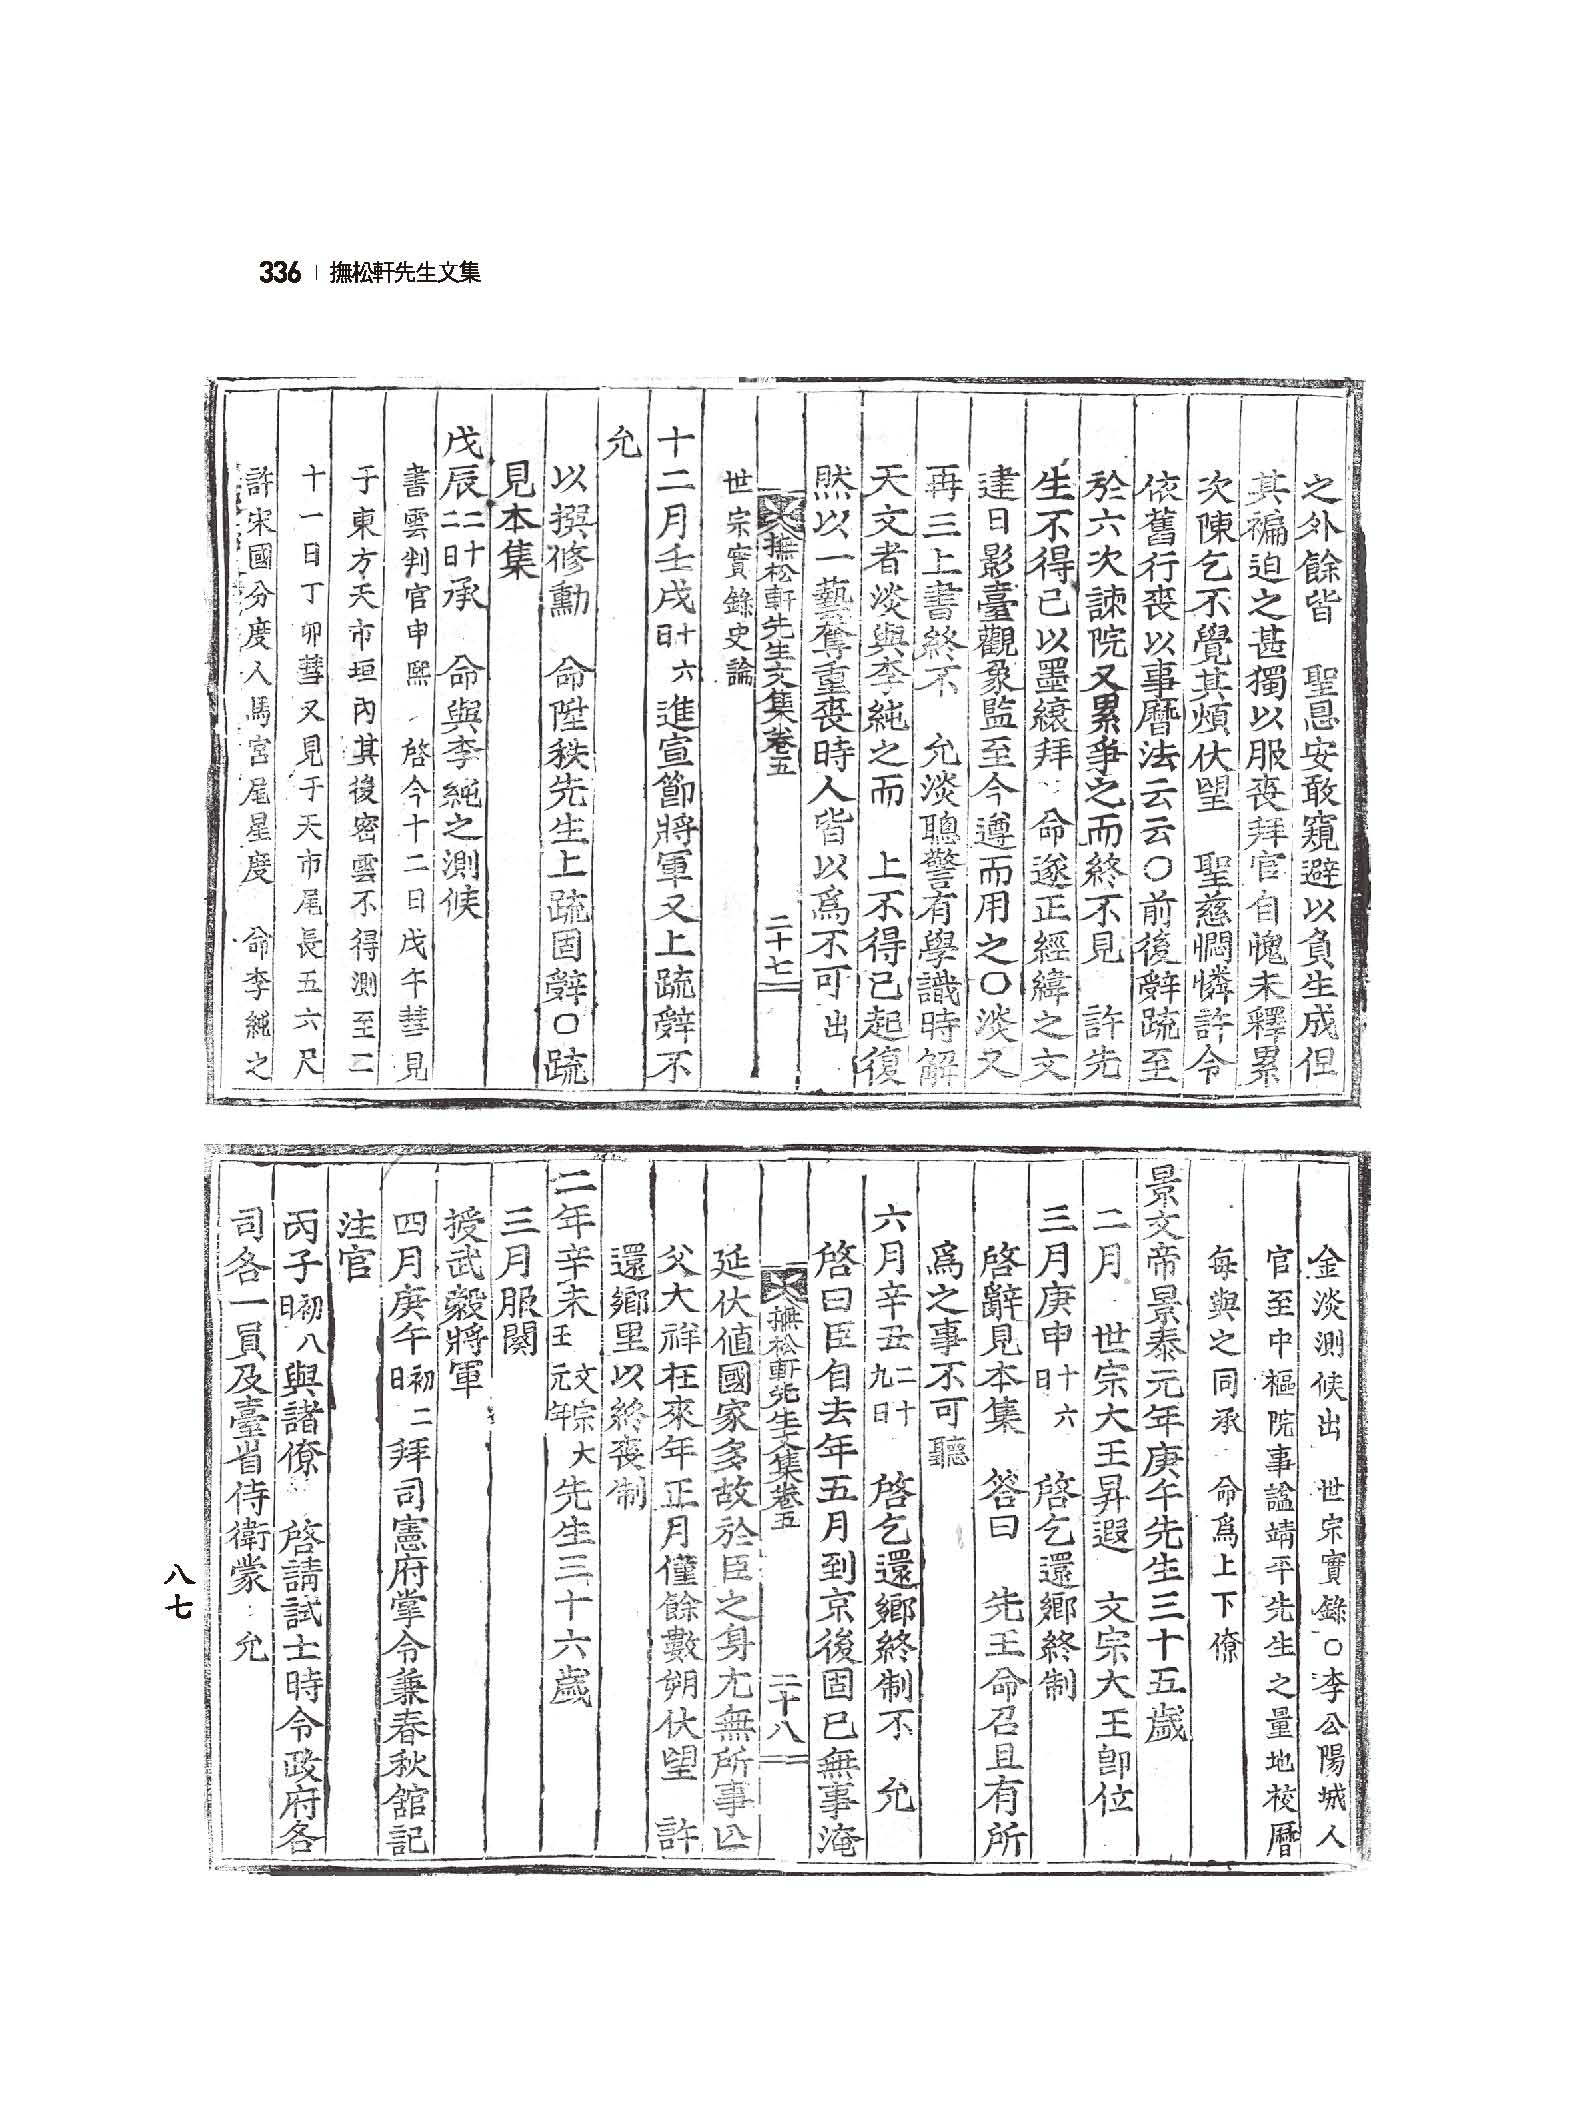 336 | 撫松軒先生文集
之外餘皆 聖恩安敢窺避以負生成但
其褊迫之甚獨以服喪拜官自愧未釋累
次陳乞不覺其煩伏望 聖慈憫憐許令
依舊行喪以事曆法云云○前後辭疏至
於六次諫院又累爭之而終不見 許先
生不得已以墨縗拜 命遂正經緯之文
建日影臺觀象監至今遵而用之○淡又
再三上書終不 允淡聰警有學識時解
天文者淡與李純之而 上不得已起復
然以一藝奪重喪時人皆以爲不可出
世宗實錄史論
撫松軒先生文集卷五 二十七
十二月壬戌十六日進宣節將軍又上疏辭不
允
以撰修勳 命陞秩先生上疏固辭○疏
見本集
戊辰二十二日承 命與李純之測候
書雲判官申熙 啓今十二日戊午彗見
于東方天市垣內其後密雲不得測至二
十一日丁卯彗又見于天市尾長五六尺
許宋國分度人馬宮尾星度 命李純之
金淡測候出 世宗實錄○李公陽城人
官至中樞院事謚靖平先生之量地校曆
每與之同承 命爲上下僚
景文帝景泰元年庚午先生三十五歲
二月 世宗大王昇遐 文宗大王卽位
三月庚申十六日 啓乞還鄕終制
啓辭見本集 答曰 先王命召且有所
爲之事不可聽
六月辛丑二十九日 啓乞還鄕終制不 允
啓曰臣自去年五月到京後固已無事淹
撫松軒先生文集卷五 二十八
延伏値國家多故於臣之身尤無所事亡
父大祥在來年正月僅餘數朔伏望 許
還鄕里以終喪制
二年辛未文宗大王元年先生三十六歲
三月服闋
授武毅將軍
四月庚午初二日拜司憲府掌令兼春秋館記
注官
丙子初八日與諸僚 啓請試士時令政府各
司各一員及臺省侍衛蒙 允
八七